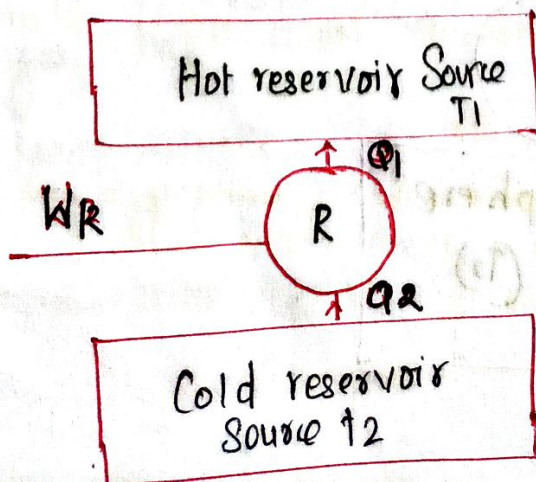 Hot reservoir Source
T1
Q1
WR
R
Q2
Cold reservoir
Source T2